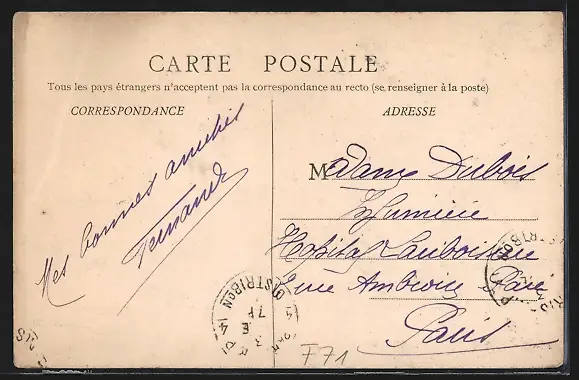 CARTE POSTALE
Tous les pays étrangers n'acceptent pas la correspondance au recto (se renseigner à la poste)
CORRESPONDANCE
ADRESSE
Mes bonnes amitiés
Fernande
Madame Dubois
Infirmière
Hopital Lariboisière
rue Ambroise Paré
Paris
DISTRIBON
F71